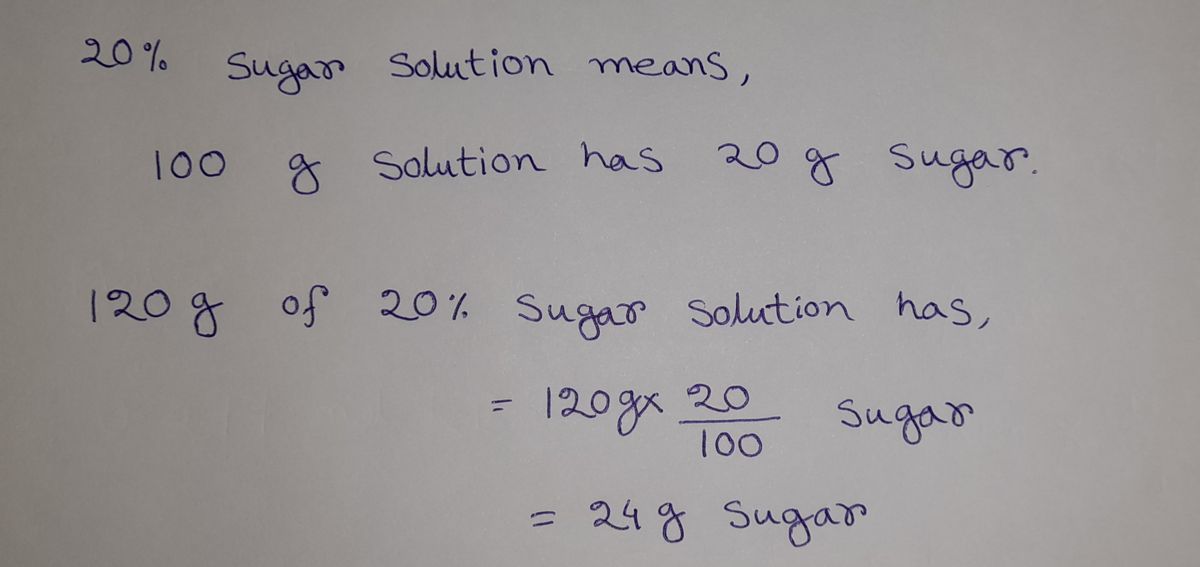 20% Sugar Solution means,
100 g Solution has 20 g Sugar.
120 g of 20% Sugar Solution has,
= 120 g x 20/100 Sugar
= 24 g Sugar